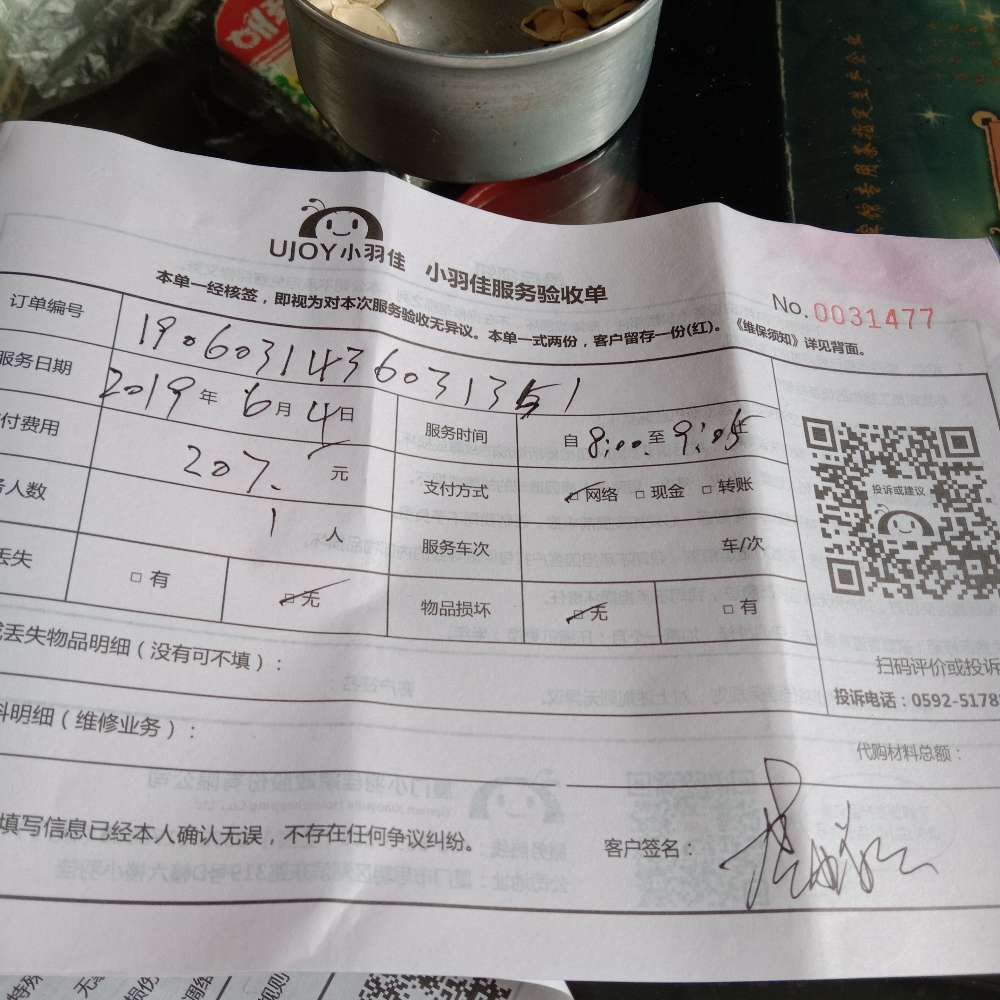 UJOY小羽佳 小羽佳服务验收单
No.0031477
本单一经核签，即视为对本次服务验收无异议。本单一式两份，客户留存一份(红)。《维保须知》详见背面。
订单编号 190603143603135
服务日期 2019年6月4日 服务时间 自8:00至9:05
付费用 207.元 支付方式 □网络 □现金 □转账
人数 1人 服务车次 车/次
丢失 □有 □无 物品损坏 □无 □有
投诉或建议
扫码评价或投诉
投诉电话：0592-5178
丢失物品明细（没有可不填）：
料明细（维修业务）：
代购材料总额：
填写信息已经本人确认无误，不存在任何争议纠纷。 客户签名：